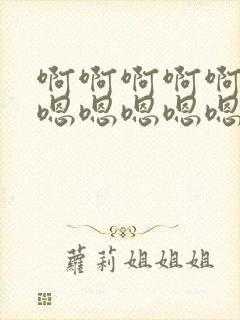 啊啊啊啊啊
嗯嗯嗯嗯嗯
蘿莉姐姐姐